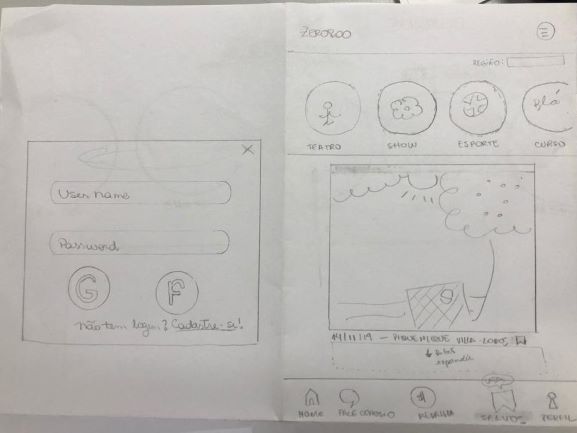 User name
Password
G
F
Não tem login? Cadastre-se!
ZERO800
REGIÃO:
TEATRO
SHOW
ESPORTE
CURSO
Blá
14/11/19 — PIQUENIQUE VILLA-LOBOS
HOME
FALE CONOSCO
SALVOS
PERFIL